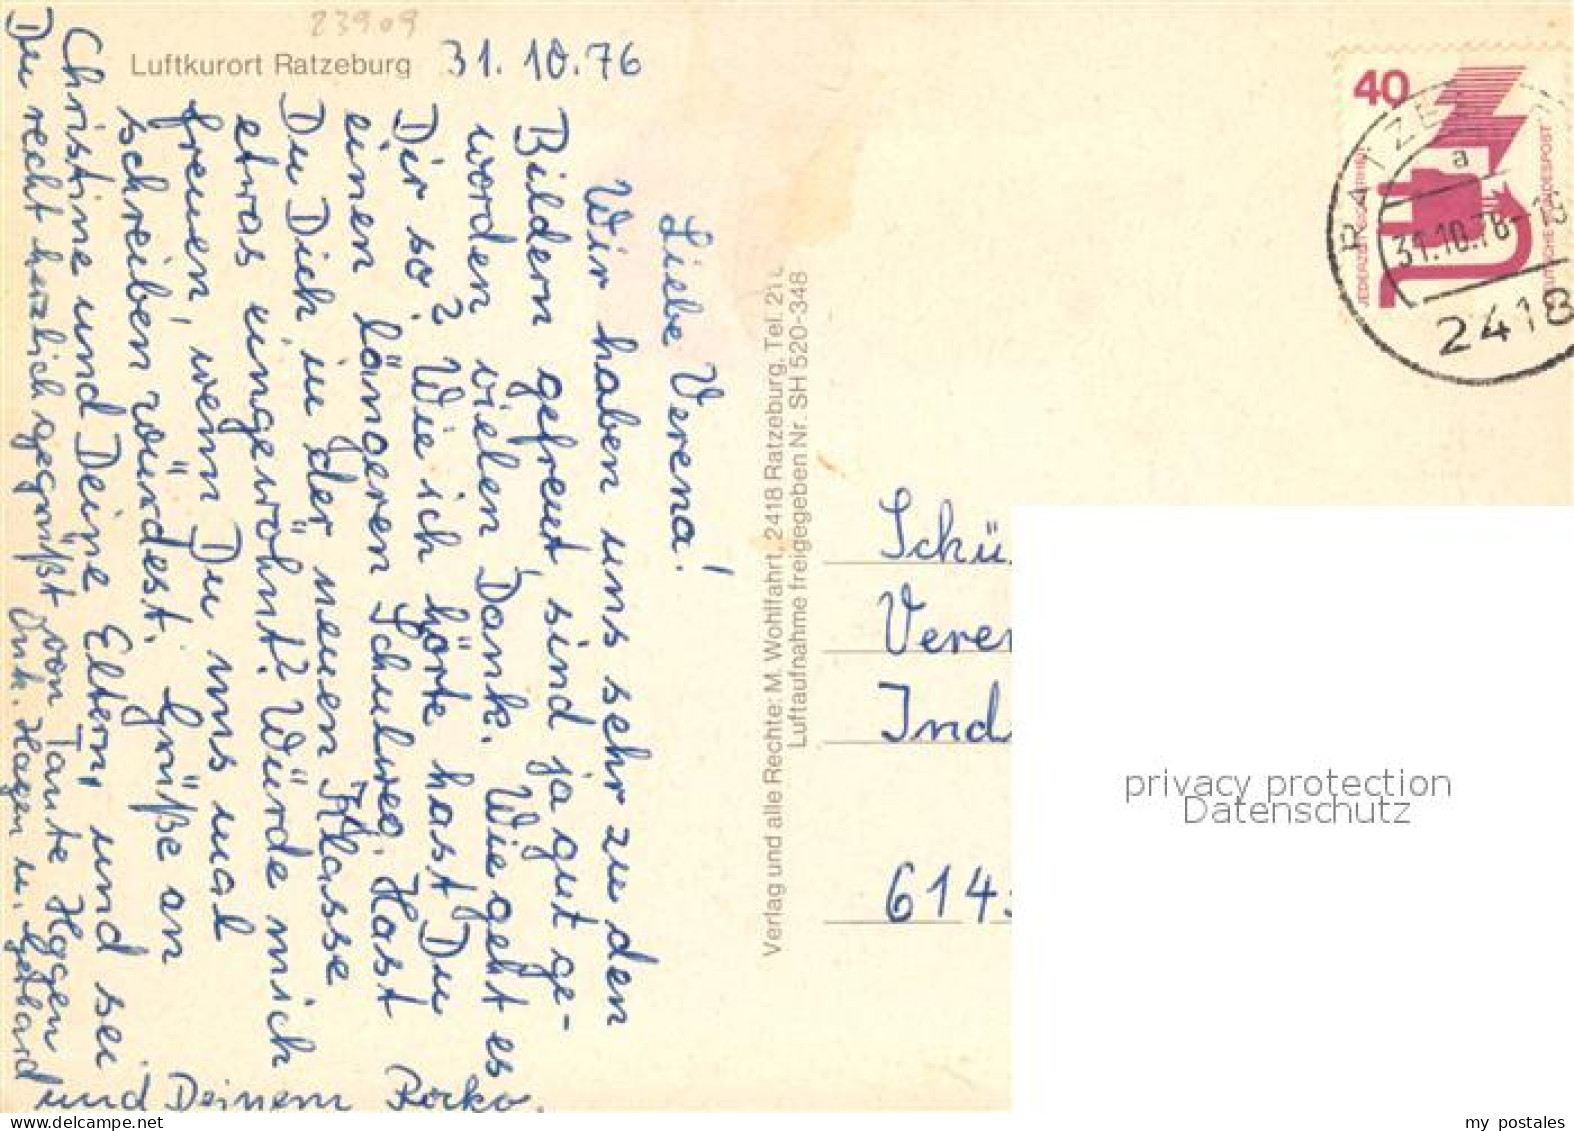 23909
Luftkurort Ratzeburg
31.10.76
Liebe Verena!
Wir haben uns sehr zu den
Bildern gefreut, sind ja gut ge-
worden, vielen Dank. Wie geht es
Dir so? Wie ich hörte hast Du
einen längeren Schulweg. Hast
Du Dich in der neuen Klasse
etwas eingewöhnt? Würde mich
freuen, wenn Du uns mal
schreiben würdest. Grüße an
Christine und Deine Eltern, und sei
Du recht herzlich gegrüßt von Tante
Onk. Hagen u. Gerhard
und Deinem
Verlag und alle Rechte: M. Wohlfahrt, 2418 Ratzeburg, Tel. 21
Luftaufnahme freigegeben Nr. SH 520-348
40
JEDERZEIT SICHERHEIT
DEUTSCHE BUNDESPOST
RATZE
a
31.10.76-16
2418
Schü
Vere
Ind
614
privacy protection
Datenschutz
my postales